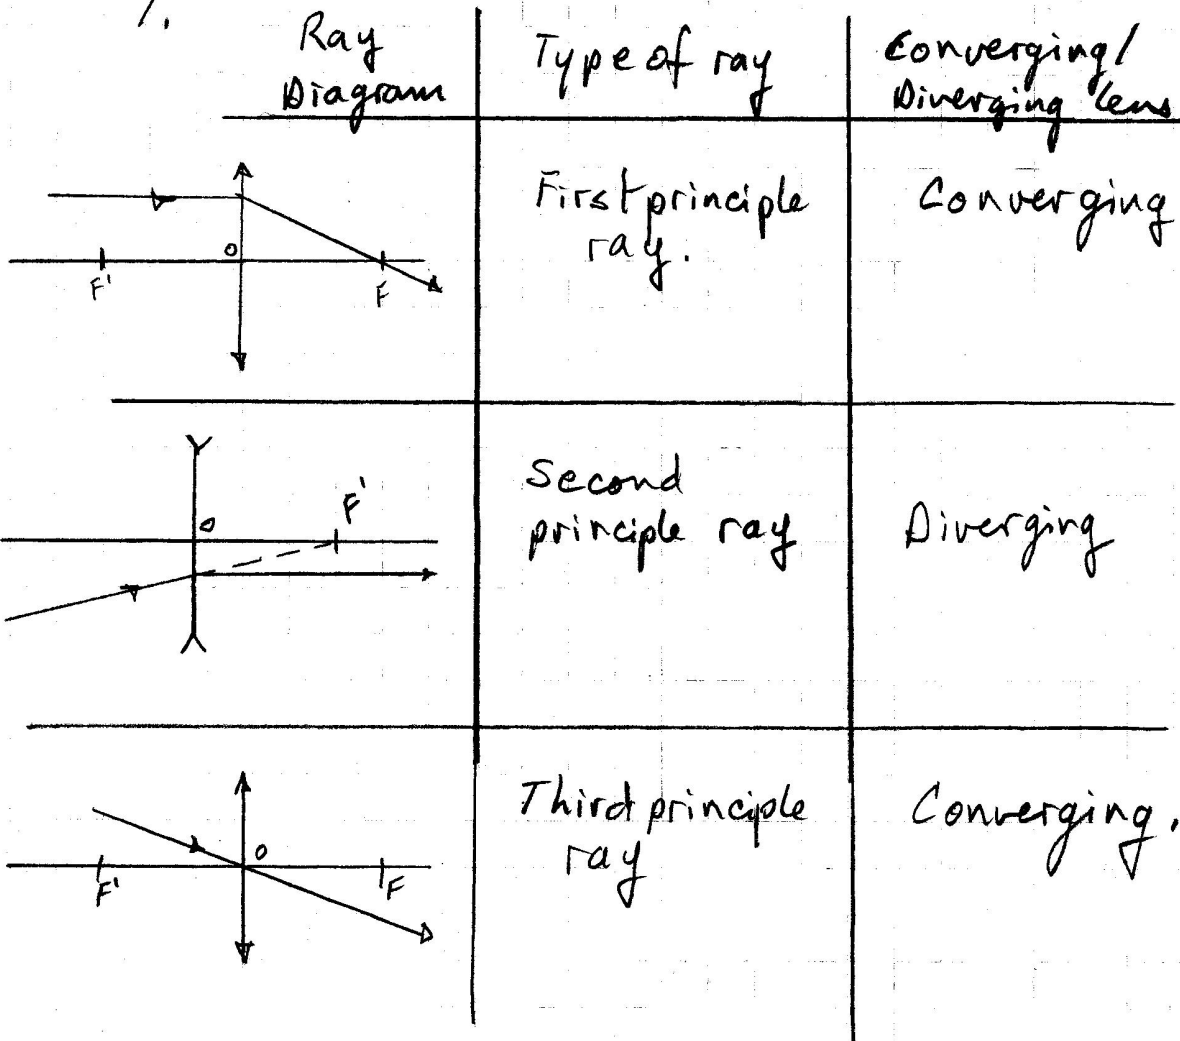 1.
Ray
Diagram
Type of ray
Converging/
Diverging lens
O
F'
F
First principle
ray.
Converging
O
F'
Second
principle ray
Diverging
O
F'
F
Third principle
ray
Converging.